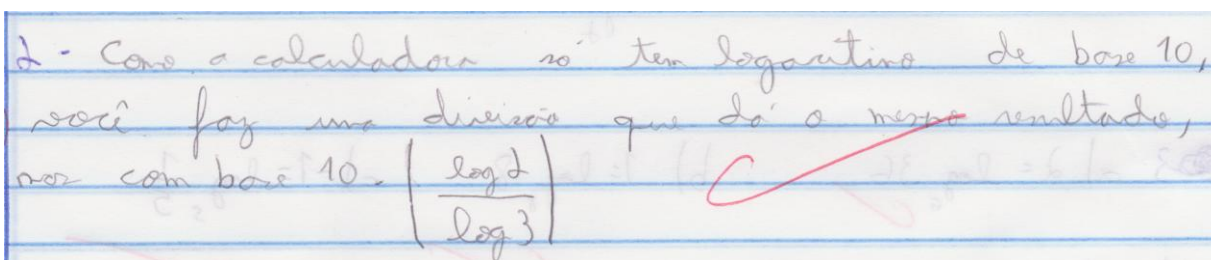 2 - Como a calculadora só tem logaritimo de base 10,
você faz uma divisão que dá o mesmo resultado,
mas com base 10. (log 2
log 3)